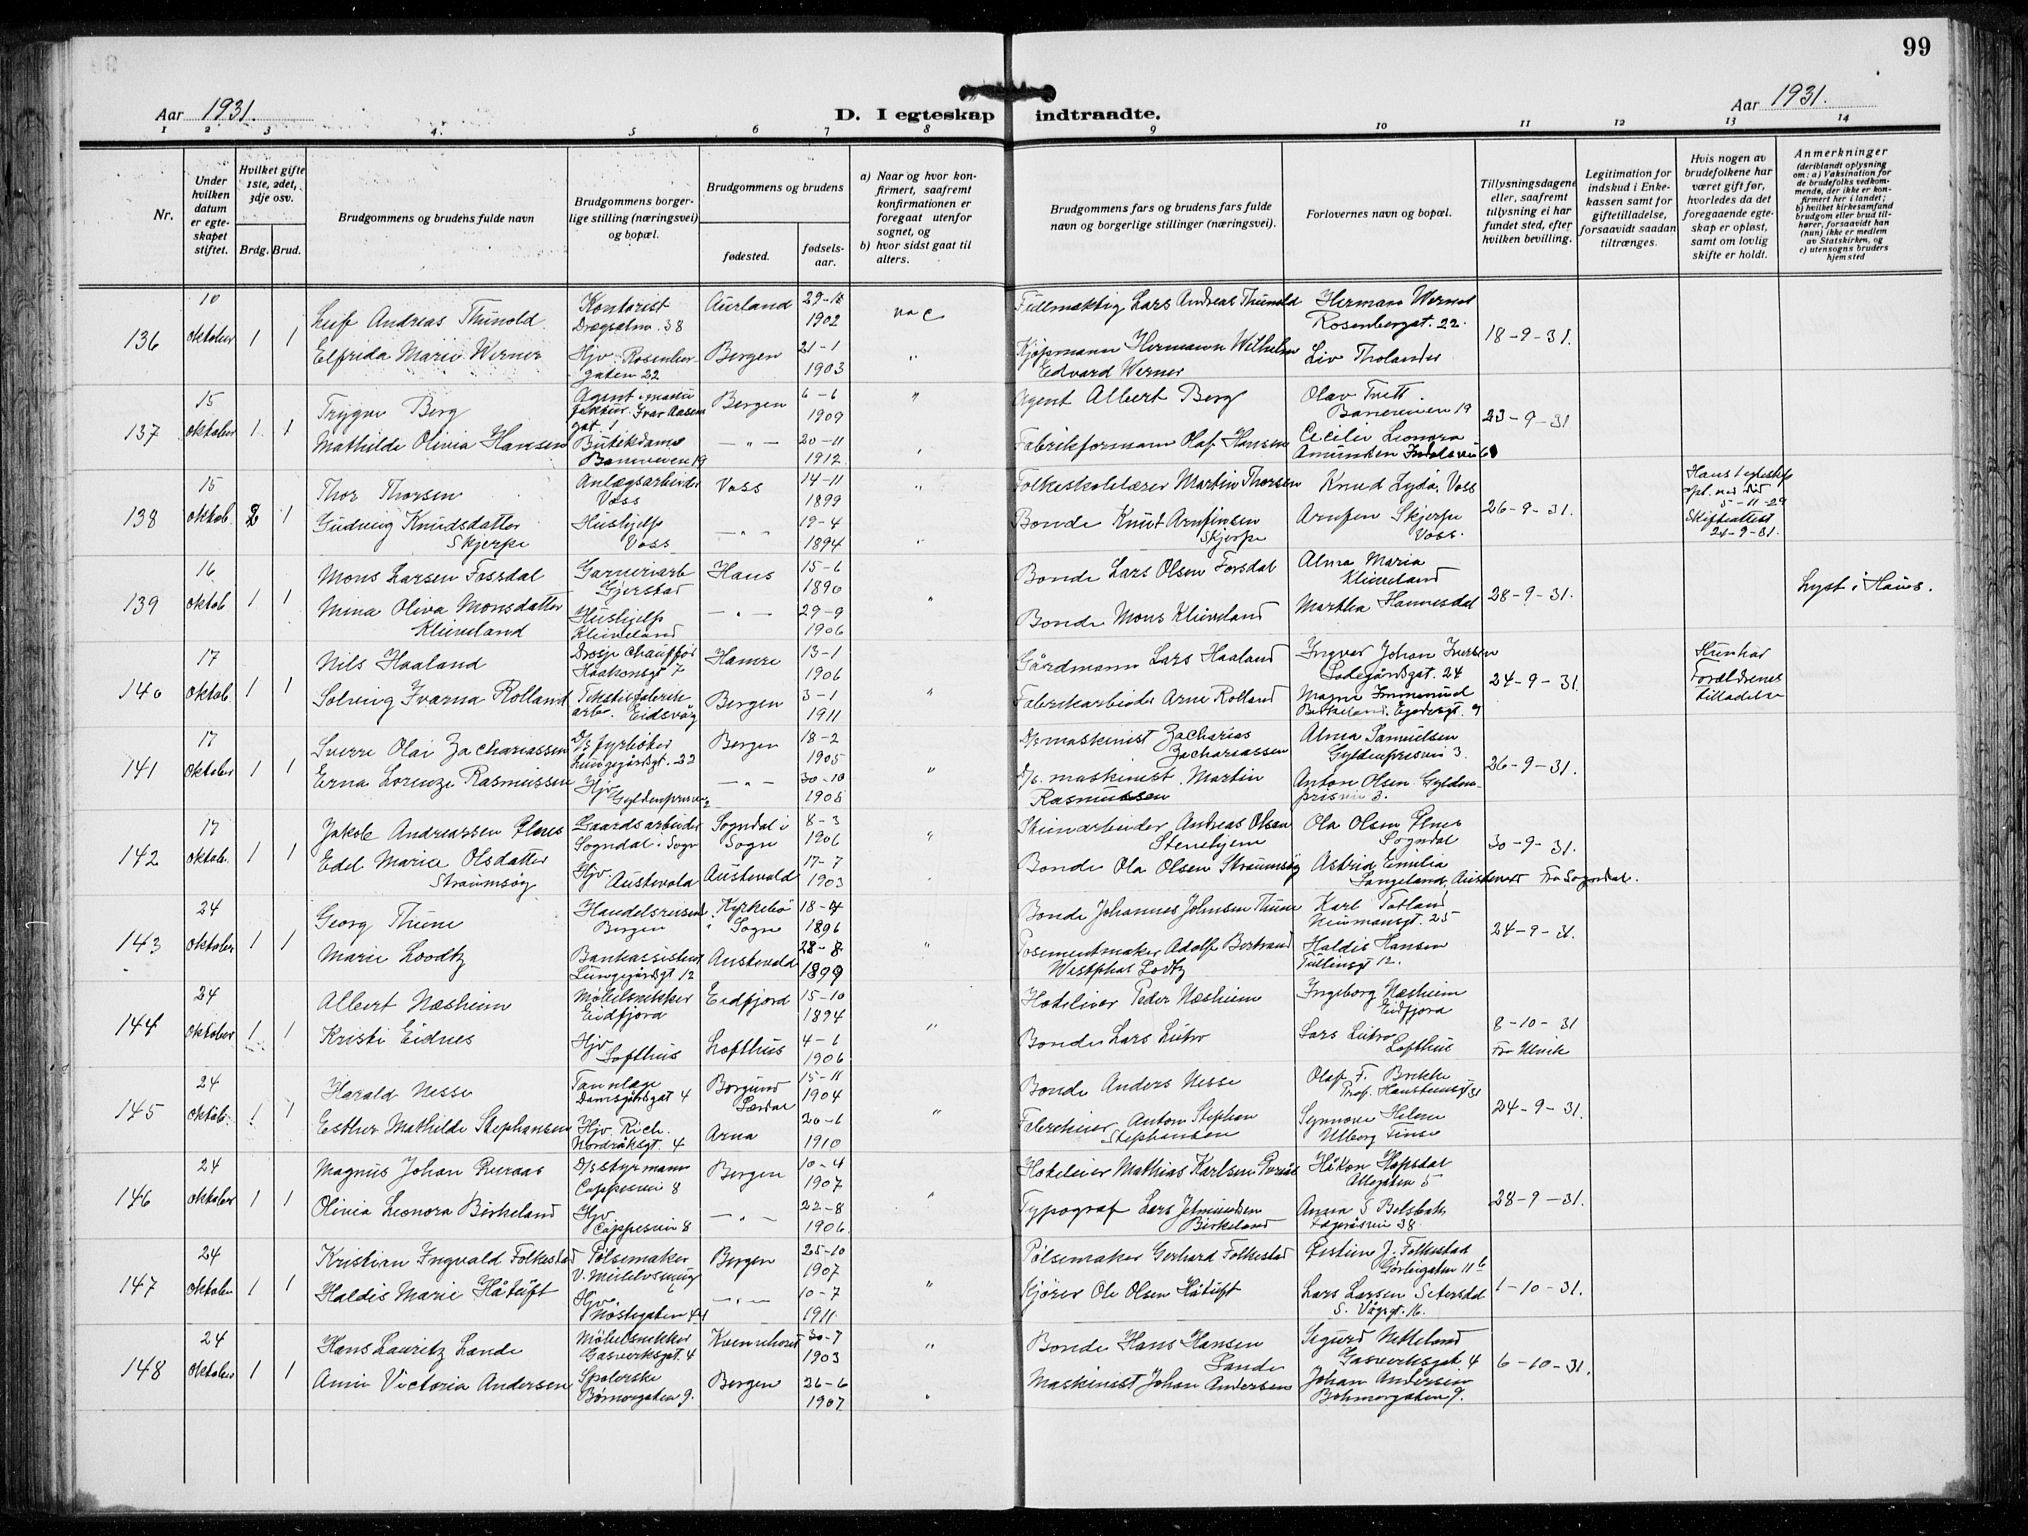 99
Aar 1931.
D. I egteskap indtraadte.
Aar 1931.
1 2 3 4. 5 6 7 8 9 10 11 12 13 14
Nr.
Under hvilken datum er egteskapet stiftet.
Hvilket gifte 1ste, 2det, 3dje osv.
Brdg. Brud.
Brudgommens og brudens fulde navn
Brudgommens borgerlige stilling (næringsvei) og bopæl.
Brudgommens og brudens
fødested.
fødselsaar.
a) Naar og hvor konfirmert, saafremt konfirmationen er foregaat utenfor sognet, og
b) hvor sidst gaat til alters.
Brudgommens fars og brudens fars fulde navn og borgerlige stillinger (næringsvei).
Forlovernes navn og bopæl.
Tillysningsdagene eller, saafremt tillysning ei har fundet sted, efter hvilken bevilling.
Legitimation for indskud i Enkekassen samt for giftetilladelse, forsaavidt saadan tiltrænges.
Hvis nogen av brudefolkene har været gift før, hvorledes da det foregaaende egteskap er opløst, samt om lovlig skifte er holdt.
Anmerkninger
(deriblandt oplysning om: a) Vaksination for de brudefolks vedkommende, der ikke er konfirmert her i landet; b) hvilket kirkesamfund brudgom eller brud tilhører, forsaavidt han (hun) ikke er medlem av Statskirken, og c) utensogns bruders hjemsted
136 10 oktober 1 1
Leif Andreas Thunold Kontorist Aurland 1902
Fuldmæktig Lars Andreas Thunold Hermann Werner Rosenbergat. 22. 18-9-31.
Elfrida Marie Werner Hjv. Rosenbergaten 22 Bergen 21-1 1903
Kjøpmann Hermann Wilhelm Edvard Werner Liv Tholander
137 15 oktober 1 1
Trygve Berg Bergen 6-6 1909
Agent Albert Berg Olav Tvett Baneveien 19 23-9-31
Mathilde Olivia Hansen Butikdame Baneveien 19 - " - 20-11 1912
Fabrikformann Olaf Hansen Cecilie Leonora Amundsen
138 15 oktob. 2 1
Thor Thorsen Anlægsarbeider Voss Voss 14-11 1899
Folkeskolelærer Martin Thorsen Knud Lydo, Voss 26-9-31. Hans 1 egteskp opl. ved død 5-11-29 Skifteattest 24-9-31.
Gudveig Knudsdatter Skjerpe Hushjelp Voss - " - 19-4 1894
Bonde Knut Arnfinsen Skjerpe Arnfin Skjerpe Voss.
139 16 oktob 1 1
Mons Larsen Fossdal Garneriarb Gjerstad Haus 15-6 1890
Bonde Lars Olsen Forsdal Alma Maria Klieveland 28-9-31. Lyst i Haus.
Mina Oliva Monsdatter Klieveland Hushjelp Klieveland - " - 29-9 1906
Bonde Mons Klieveland Martha Hannesdal
140 17 oktob. 1 1
Nils Haaland Drosje chauffør Haakonsgt 7 Hamre 13-1 1906
Gårdmann Lars Haaland Ingvar Johan Iversen Ladegårdsgat. 24 24-9-31. Hun har Forældrenes tilladelse
Solveig Ivarna Rolland Tekstilfabrikarb. Eidsvåg Bergen 3-1 1911
Fabrikarbeider Arne Rolland Magne Immanuel Birkeland.
141 17 oktober 1 1
Sverre Olai Zachariassen D/s fyrbøter Lungegårdsgt. 22 Bergen 18-2 1905
D/s maskinist Zacharias Zachariassen Alma Samuelsen Gyldenprisvei 3. 26-9-31.
Erna Lorenze Rasmussen Hjv. Gyldenprisvei - " - 30-10 1905
D/s. maskinist Martin Rasmussen Anton Olsen Gyldenprisvei 3.
142 17 oktob. 1 1
Jakob Andreassen Gaardsarbeider Sogndal i Sogn Sogndal i Sogn 8-3 1906
Andreas Olsen Stenehjem Ola Olsen Sogndal 30-9-31.
Edel Marie Olsdatter Straumsøy Hjv. Austevold Austevold 17-7 1903
Bonde Ola Olsen Straumsøy Astrid Emilia Langeland, Austevold Fra Sogndal.
143 24 oktober 1 1
Georg Thune Handelsreisend. Bergen Kyrkebø Sogn 1896
Bonde Johannes Johnsen Thune Karl Totland Neumansgt. 25 24-9-31.
Marie Loodtz Bankassistent Lungegårdsgt 12 Austevold 28-8 1899
Posementmaker Adolf Bertrand Westphal Lodtz Haldis Hansen Tullinsgt 12.
144 24 oktober 1 1
Albert Næsheim Møbelsnikker Eidfjord Eidfjord 15-10 1894
Hoteleier Peder Næsheim Ingeborg Næsheim Eidfjord 8-10-31
Kristi Eidnes Hjv Lofthus Lofthus 4-6 1906
Bonde Lars Lutro Lars Lutro Lofthus Fra Ulvik
145 24 oktob. 1 1
Harald Nesse Tannlæge Damsgårdsgat 4 Borgund Lærdal 15-11 1904
Bonde Anders Nesse Olaf F. Brekke Prof. Hansteensgt 31 24-9-31.
Esther Mathilde Stephansen Hjv. Rich. Nordråksgt. 4 Arna 20-6 1910
Fabrikeier Anton Stephan Stephansen Synnøve Helene Ulberg Finse
146 24 oktober 1 1
Magnus Johan Puraas D/s styrmann Cappesvei 8 Bergen 10-4 1907
Hoteleier Mathias Karlsen Håkon Hopsdal 28-9-31.
Olivia Leonora Birkeland Hjv. Cappesvei 8 - " - 22-8 1906
Typograf Lars Jetmundsen Birkeland Anna S
147 24 oktober 1 1
Kristian Ingvald Folkestad Pølsemaker Bergen 25-10 1907
Pølsemaker Gerhard Folkestad J. Folkestad 11 b 1-10-31.
Haldis Marie Håtuft Hjv. Nøstegaten 41 - " - 10-7 1911
Kjører Ole Olsen Håtuft Lars Larsen Setersdal
148 24 oktober 1 1
Hans Lauritz Lande Møbelsnikker Gasverksgat. 4 30-7 1903
Bonde Hans Hansen Lande Sigurd Netteland Gasverksgat. 4 6-10-31.
Anni Victoria Andersen Bergen 26-6 1907
Maskinist Johan Andersen Johan Andersen